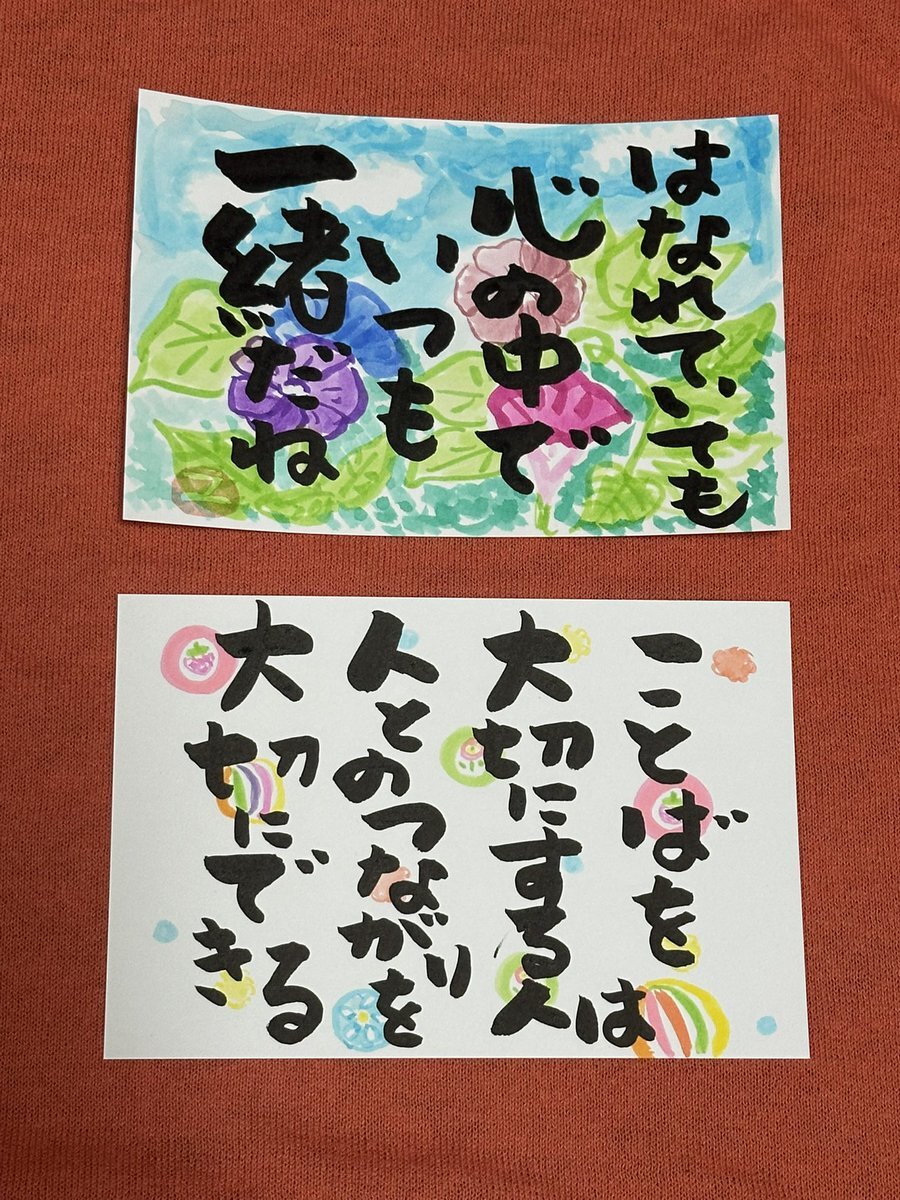 はなれていても
心の中で
いつも
一緒だね
ことばを
大切にする人は
人とのつながりを
大切にできる